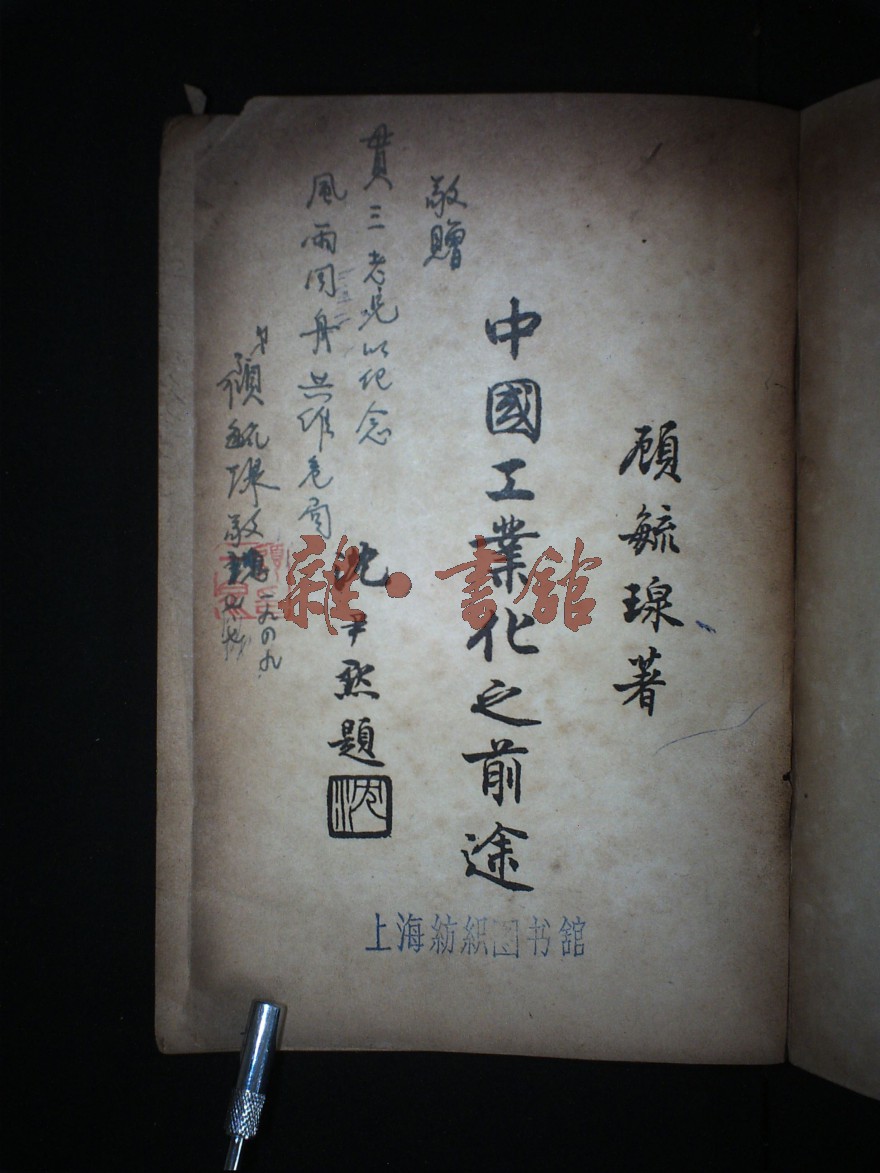 顾毓瑔著
中國工業化之前途
沈尹默題
沈
敬贈
貫三老兄以纪念
風雨同舟共維危局
弟顧毓瑔敬贈
一九四九
上海紡織图书舘
雜·書舘